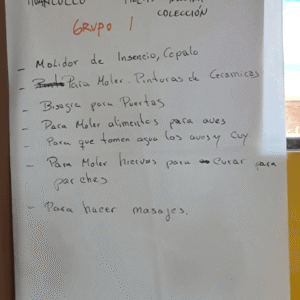 COLECCIÓN
GRUPO 1
- Molidor de Insencio, Copalo
- Para Moler. Pinturas de Ceramicas
- Bisagra para Puertas
- Para Moler alimentos para aves
- Para que tomen agua las aves y Cuy
- Para Moler hiervas para curar para
parches
- Para hacer masajes.